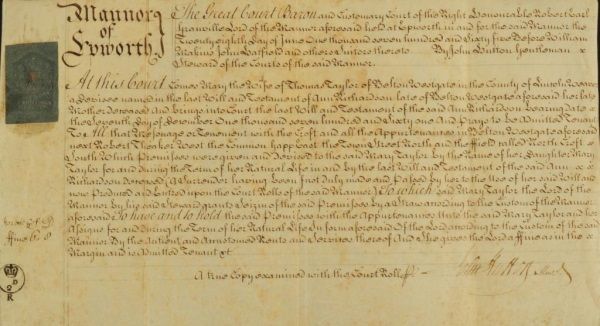 Mannor
of
Epworth
The Great Court Baron and Customary Court of the Right Honourable Robert Earl
Granville Lord of the Mannor aforesaid held at Epworth in and for the said Mannor the
Twenty eighth Day of June One thousand seven hundred and Sixty five Before William
Makins John Hatfield and others Suitors thereto By John Hutton Gentleman
Steward of the Courts of the said Mannor.
At this Court Comes Mary the Wife of Thomas Taylor of Belton Westgate in the County of Lincoln Weaver
a Devisee named in the last Will and Testament of Ann Richardson late of Belton Westgate aforesaid her late
Mother Deceased And brings into Court the last Will and Testament of the said Ann Richardson bearing date
the Seventh Day of December One thousand seven hundred and Sixty one And prays to be Admitted Tenant
To All that Messuage or Tenement with the Croft and all the Appurtenances in Belton Westgate aforesaid
next Robert Theaker West the Common East the Town Street North and the Field called North Croft
South Which Premisses were given and Devised to the said Mary Taylor by the Name of her Daughter Mary
Taylor for and during the Term of her Natural Life in and by the last Will and Testament of the said Ann
Richardson Deceased (a Surrender having been first Duly made and Passed by her to the Use of her said Will and
now Produced and Entred upon the Court Rolls of the said Mannor) To which said Mary Taylor the Lord of the
Mannor by his said Steward grants Seizin of the said Premisses by a Straw according to the Custom of the Mannor
aforesaid To have and to hold the said Premisses with the Appurtenances Unto the said Mary Taylor and her
Assigns for and During the Term of her Natural Life In form aforesaid Of the Lord according to the Custom of the said
Mannor By the Antient and Accustomed Rents and Services thereof And She gives the Lord a ffine as in the
Margin and is Admitted Tenant &c
ffine 6 8
D
R
A true Copy examined with the Court Rolls
John Hutton Steward